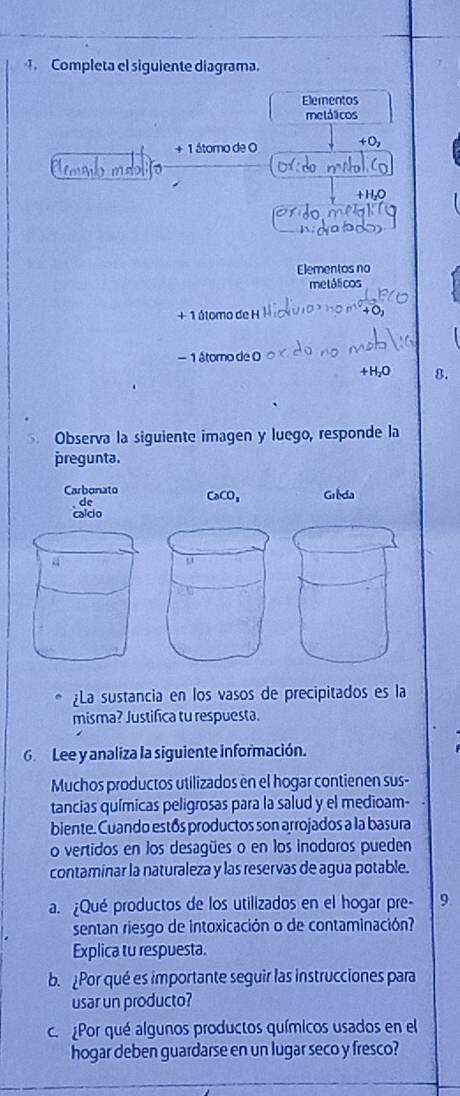 4. Completa el siguiente diagrama.
Elementos
metálicos
+ 1 átomo de O
+O₂
Elemento metalico
oxido metalico
+H₂O
oxido metalico
hidratados
Elementos no
metálicos
+ 1 átomo de H
+O₂
− 1 átomo de O oxido no metalico
+H₂O
8.
5. Observa la siguiente imagen y luego, responde la
pregunta.
Carbonato
de
calcio
CaCO₃
Greda
• ¿La sustancia en los vasos de precipitados es la
misma? Justifica tu respuesta.
6. Lee y analiza la siguiente información.
Muchos productos utilizados en el hogar contienen sus-
tancias químicas peligrosas para la salud y el medioam-
biente. Cuando estos productos son arrojados a la basura
o vertidos en los desagües o en los inodoros pueden
contaminar la naturaleza y las reservas de agua potable.
a. ¿Qué productos de los utilizados en el hogar pre-
sentan riesgo de intoxicación o de contaminación?
Explica tu respuesta.
9
b. ¿Por qué es importante seguir las instrucciones para
usar un producto?
c. ¿Por qué algunos productos químicos usados en el
hogar deben guardarse en un lugar seco y fresco?